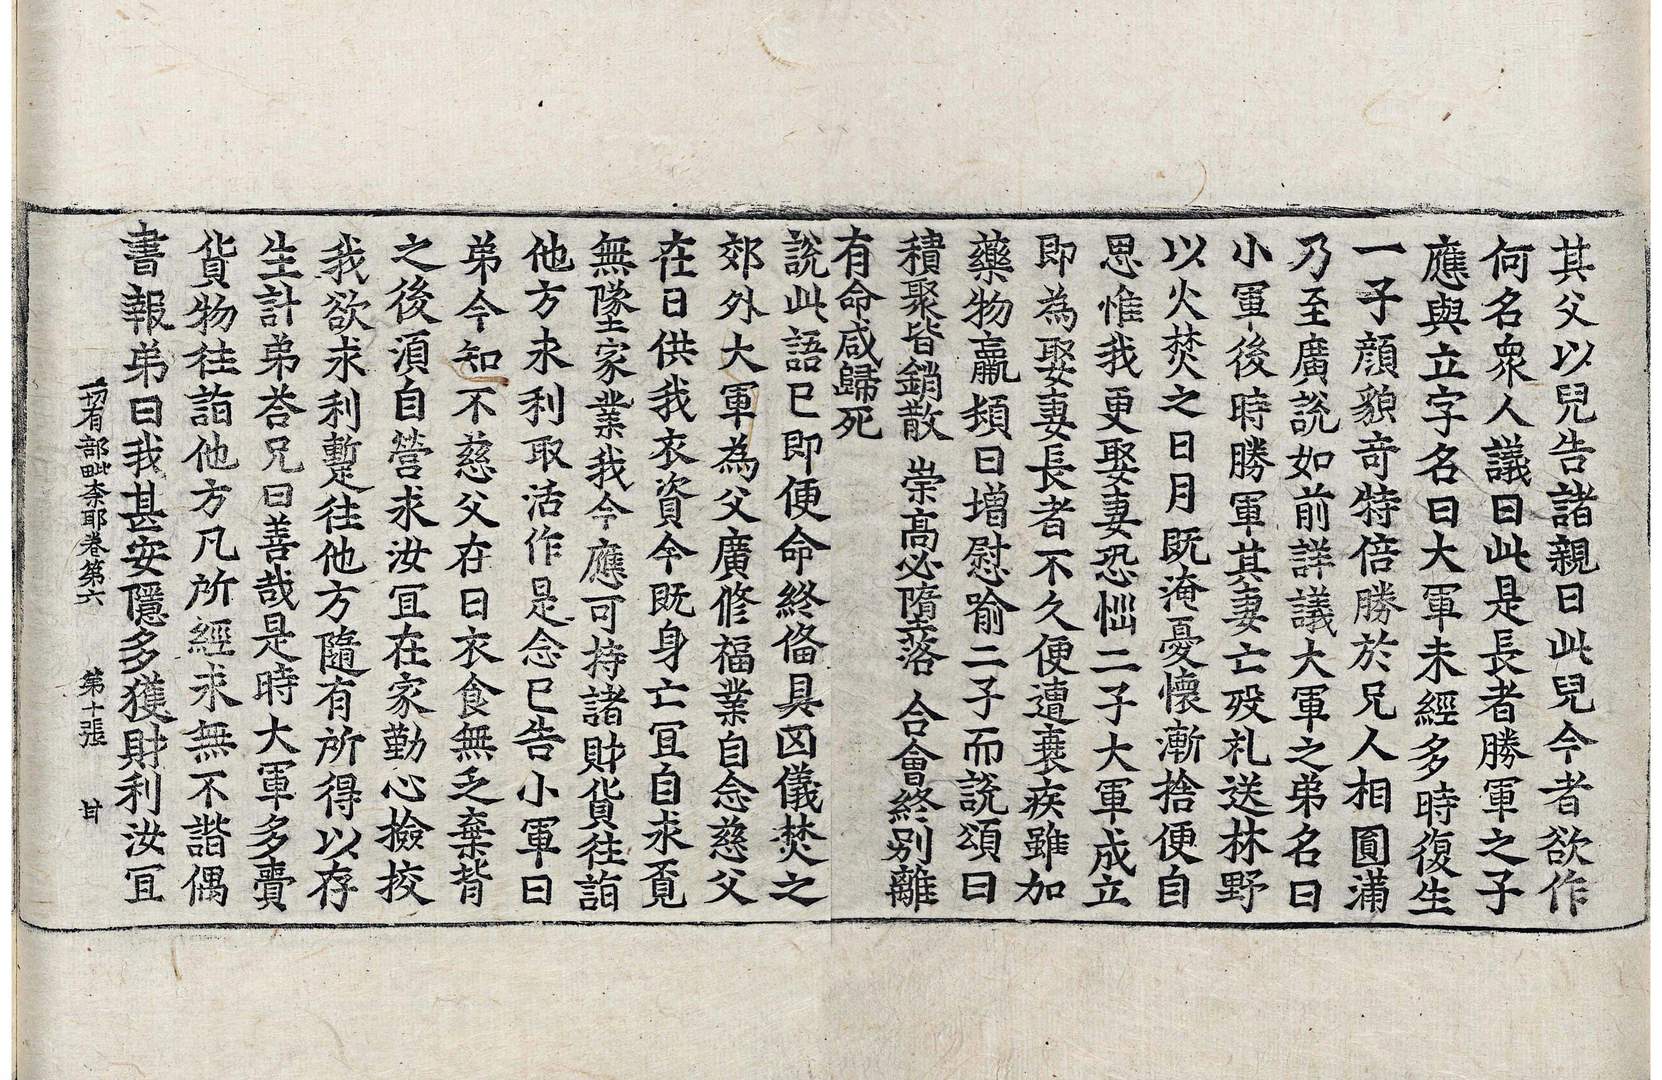 其父以兒告諸親曰此兒今者欲作
何名衆人議曰此是長者勝軍之子
應與立字名曰大軍未經多時復生
一子顔貌奇特倍勝於兄人相圓滿
乃至廣說如前詳議大軍之弟名曰
小軍後時勝軍其妻亡歿礼送林野
以火焚之日月既淹憂懷漸捨便自
思惟我更娶妻恐惱二子大軍成立
即為娶妻長者不久便遭衰疾雖加
藥物羸頻日增慰喻二子而說頌曰
積聚皆銷散 崇高必墮落 合會終別離
有命咸歸死
說此語已即便命終備具凶儀焚之
郊外大軍為父廣修福業自念慈父
在日供我衣資今既身亡冝自求覓
無墜家業我今應可持諸財貨往詣
他方求利取活作是念已告小軍曰
弟今知不慈父在日衣食無乏棄背
之後湏自營求汝冝在家勤心撿挍
我欲求利暫往他方隨有所得以存
生計弟荅兄曰善哉是時大軍多賷
貨物往詣他方凡所經求無不諧偶
書報弟曰我甚安隱多獲財利汝冝
一切有部毗奈耶卷第六 第十張 甘